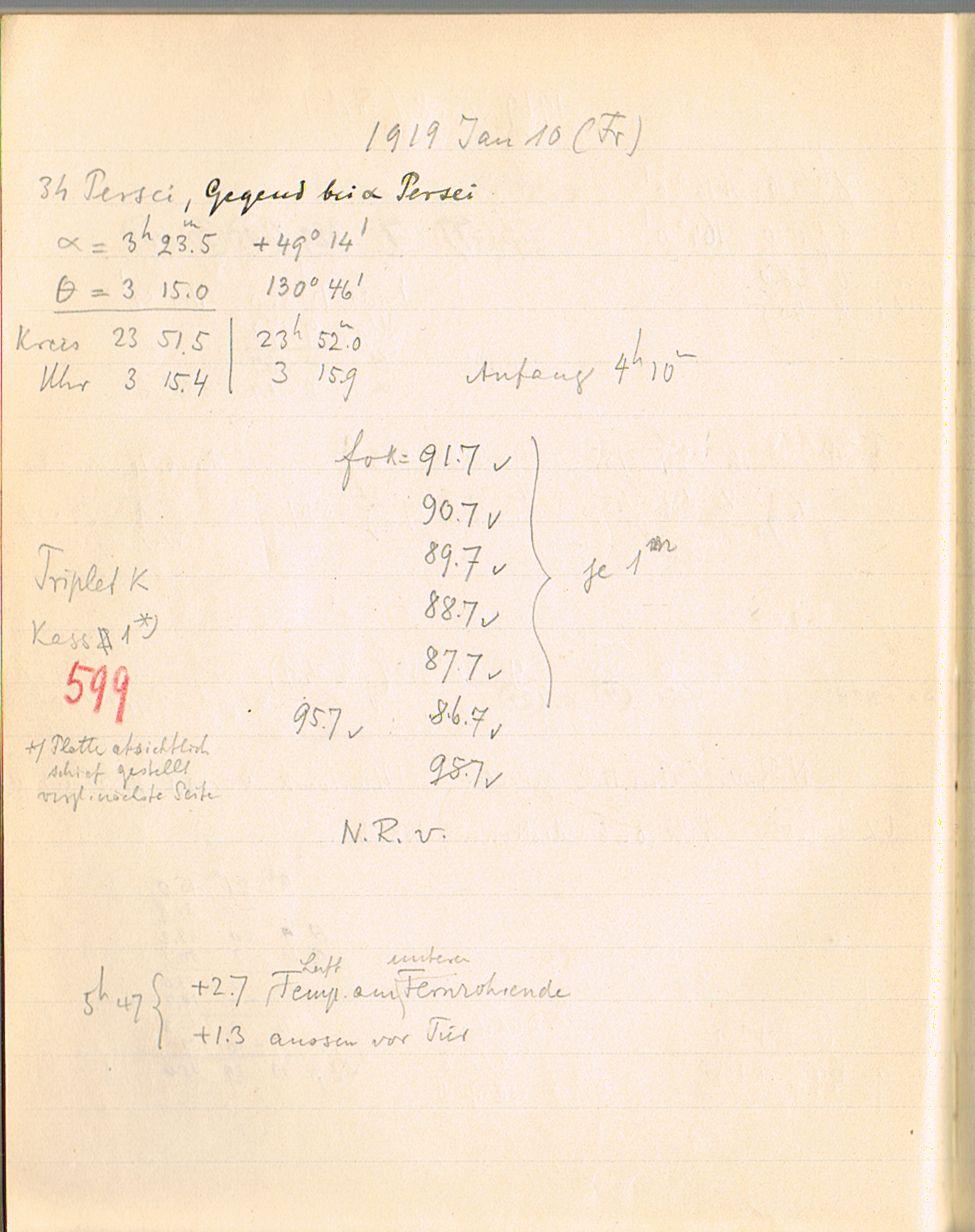 1919 Jan 10 (Fr)
34 Persei, Gegend bei α Persei
α = 3ʰ 23ᵐ.5 +49° 14'
θ = 3 15.0 130° 46'
Kreis 23 51.5 | 23ʰ 52ᵐ.0
Uhr 3 15.4 | 3 15.9
Anfang 4ʰ 10ᵐ
fok = 91.7 ✓
90.7 ✓
89.7 ✓
88.7 ✓
87.7 ✓
95.7 ✓ 86.7 ✓
95.7 ✓
je 1ᵐ
Triplet K
Kass 1 *)
599
*) Platte absichtlich
schief gestellt
vergl. nächste Seite
N. R. v.
5ʰ 47 { +2.7 Luft Temp. am unteren Fernrohrende
+1.3 aussen vor Tür